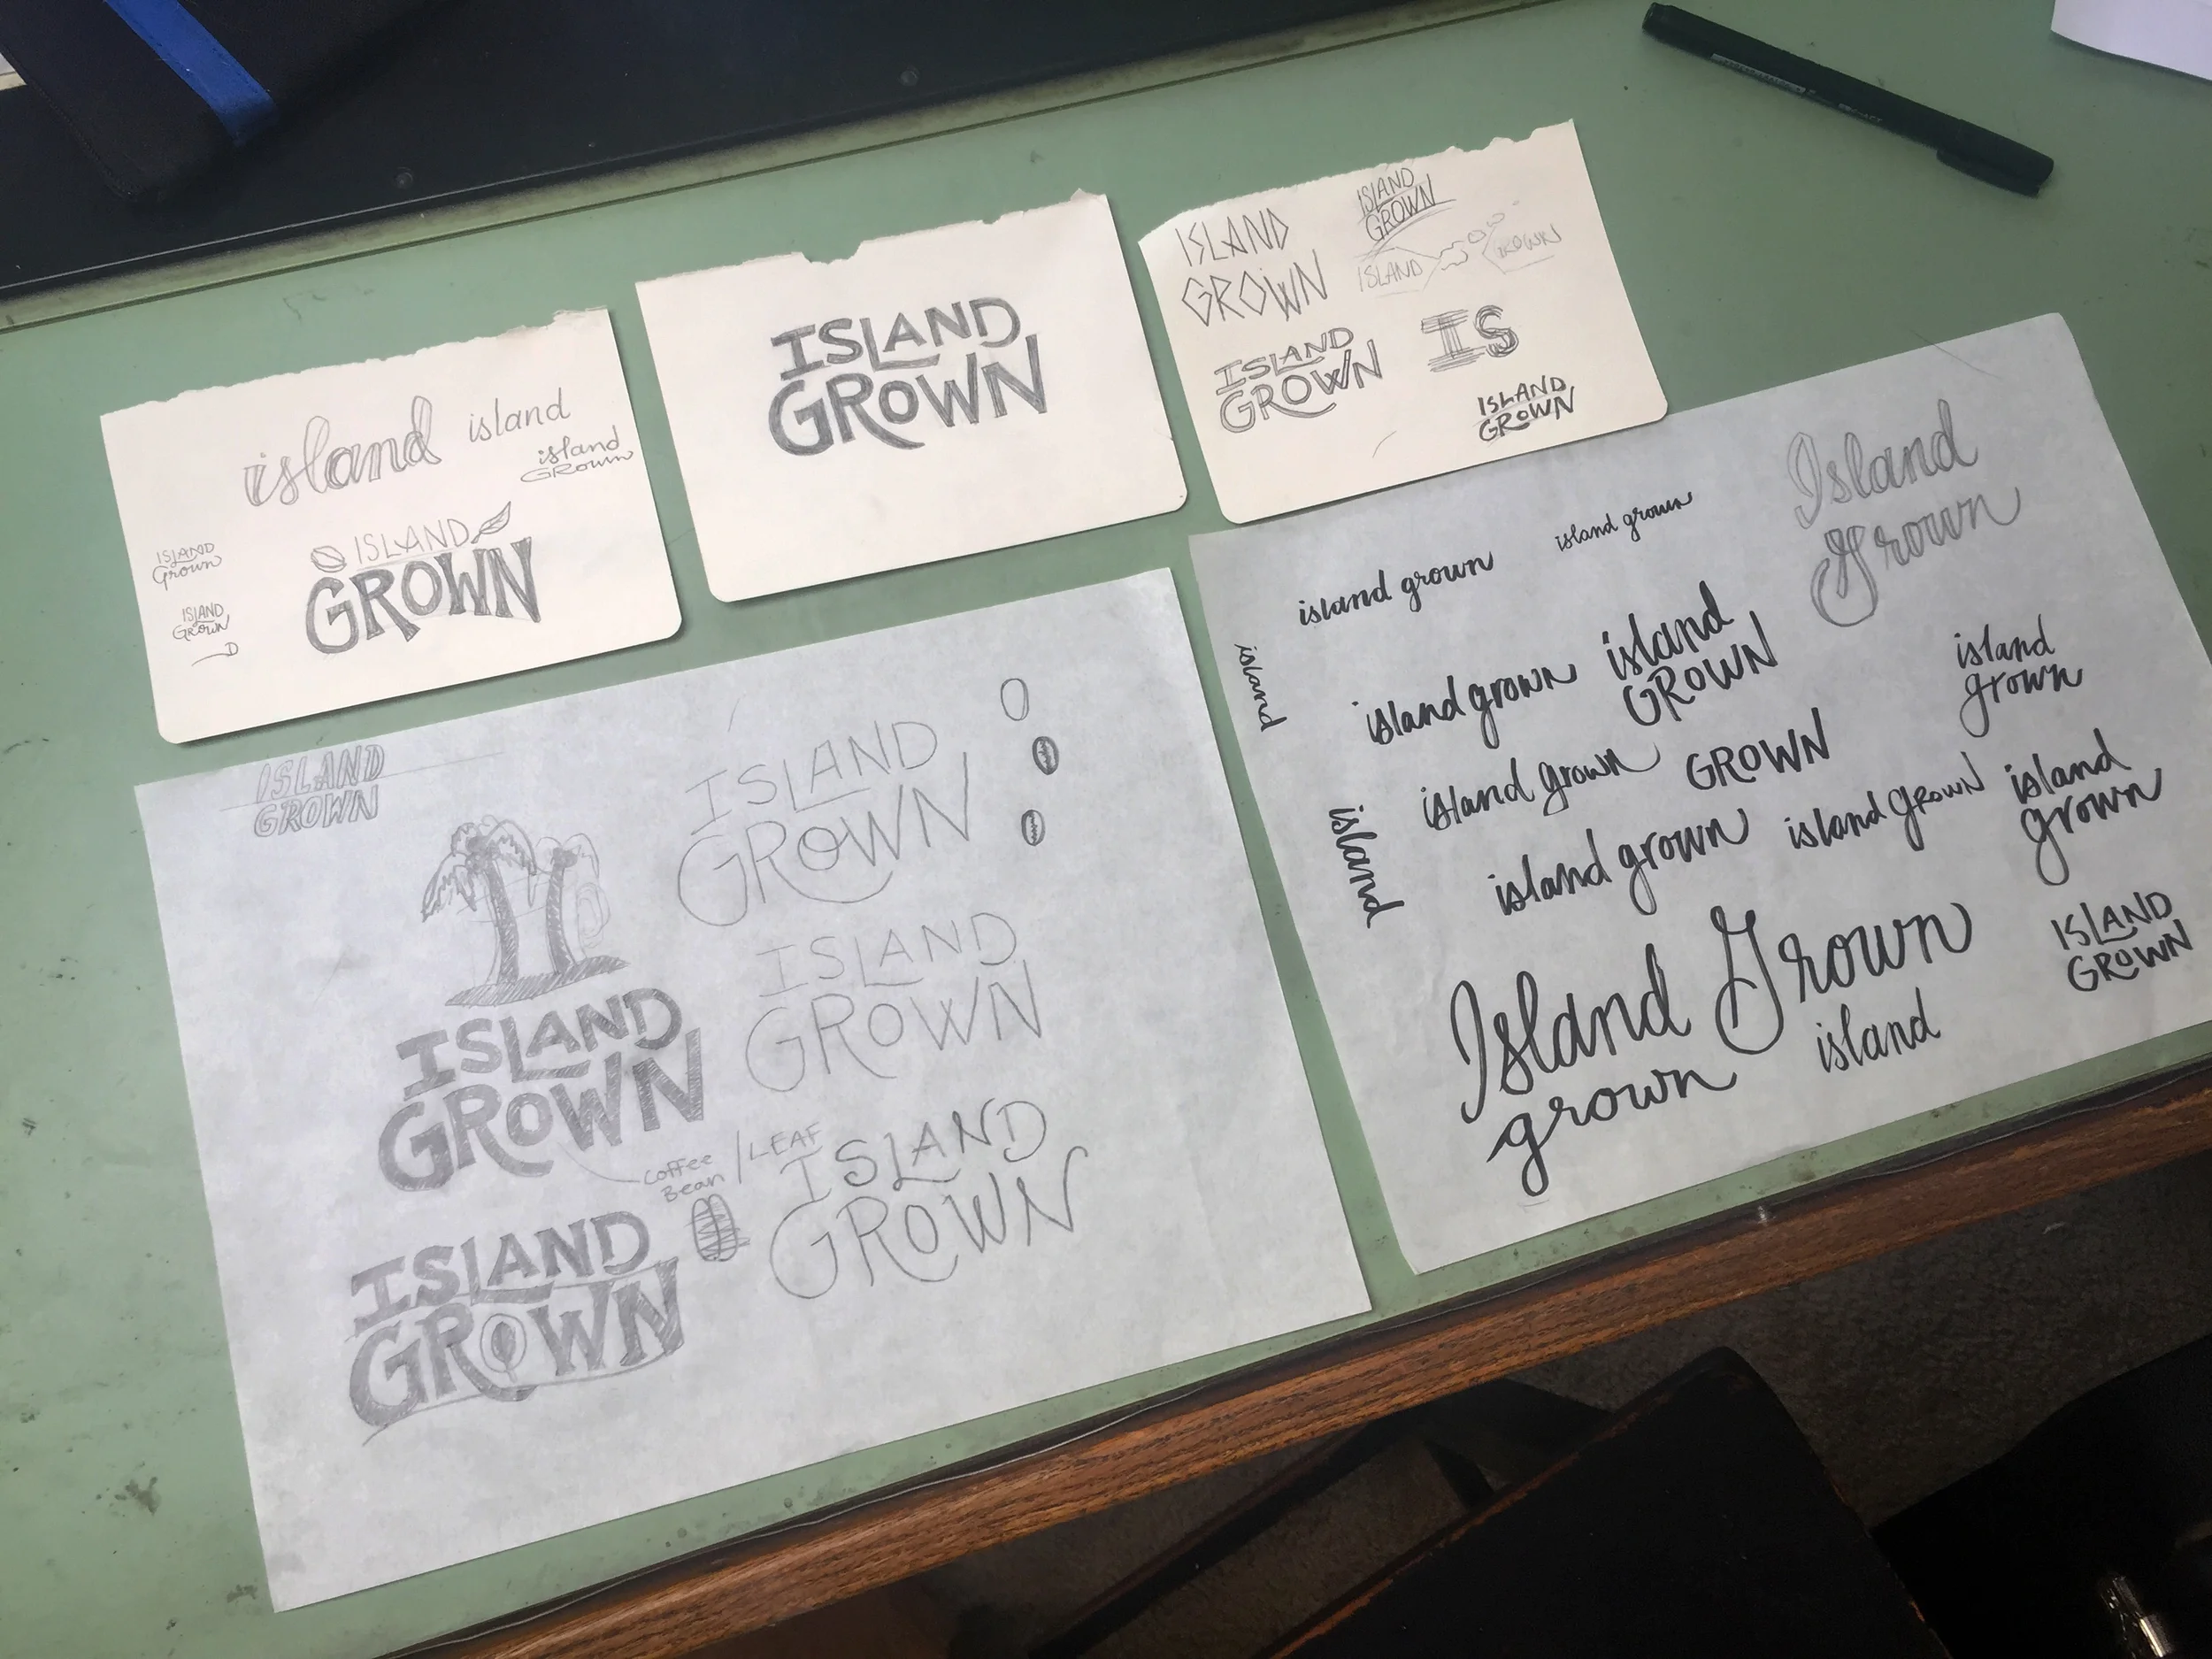 island
island
island
Grown
ISLAND
GROWN
ISLAND
Grown
ISLAND
GROWN
ISLAND
GROWN
ISLAND
GROWN
ISLAND
GROWN
ISLAND
GROWN
ISLAND
GROWN
IS
ISLAND
GROWN
ISLAND
GROWN
ISLAND
GROWN
ISLAND
GROWN
ISLAND
GROWN
Coffee
Bean / LEAF
ISLAND
GROWN
ISLAND
GROWN
Island
Grown
island grown
island grown
island
island grown
island
GROWN
island
grown
island grown
GROWN
island
island grown
island GROWN
island
grown
Island Grown
ISLAND
GROWN
grown
island